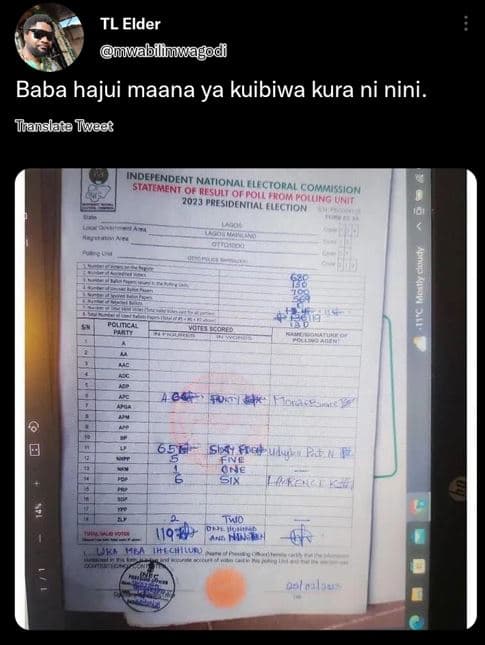 TL Elder
@mwabilimwagodi
Baba hajui maana ya kuibiwa kura ni nini.
Translate Tweet
INDEPENDENT NATIONAL ELECTORAL COMMISSION
STATEMENT OF RESULT OF POLL FROM POLLING UNIT
2023 PRESIDENTIAL ELECTION
State LAGOS
Local Government Area LAGOS MAINLAND
Registration Area
Polling Unit
1. Number of Voters on the Register 680
2. Number of Accredited Voters 130
3. Number of Ballot Papers Issued to the Polling Unit 700
4. Number of Unused Ballot Papers 569
5. Number of Spoiled Ballot Papers
6. Number of Rejected Ballots
S/N POLITICAL PARTY VOTES SCORED NAME/SIGNATURE OF POLLING AGENT
IN FIGURES IN WORDS
1 A
2 AA
3 AAC
4 ADC
5 ADP
6 APC
7 APGA
8 APM
9 APP
10 BP
11 LP
12 NNPP 5 FIVE
13 NRM 1 ONE
14 PDP 6 SIX
15 PRP
16 SDP
17 YPP
18 ZLP 2 TWO
TOTAL VALID VOTES ONE HUNDRED AND
(Name of Presiding Officer) hereby certify that the information
contained in this form is a true and accurate account of votes cast in this Polling Unit and that the election was
INEC
11°C Mostly cloudy
14%
1 / 1
hp